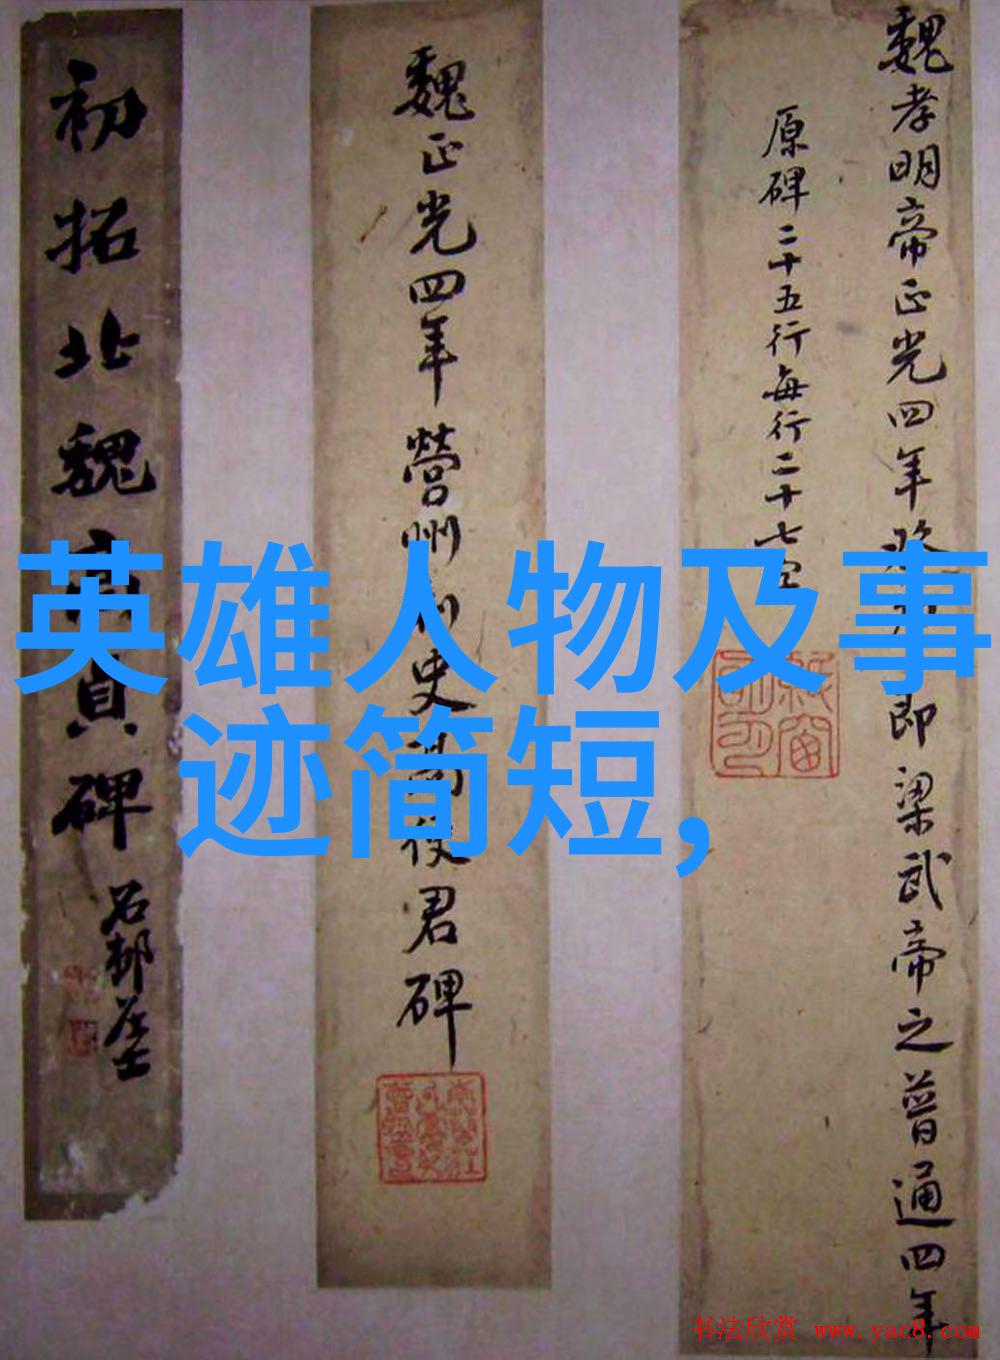 魏孝明帝正光四年
即梁武帝之普通四年
原碑二十五行每行二十七
魏正光四年營州刺史
使君碑
初拓北魏
貞碑
石邨居士
英雄人物及事
迹简短，
书法欣赏 www.yac8.com